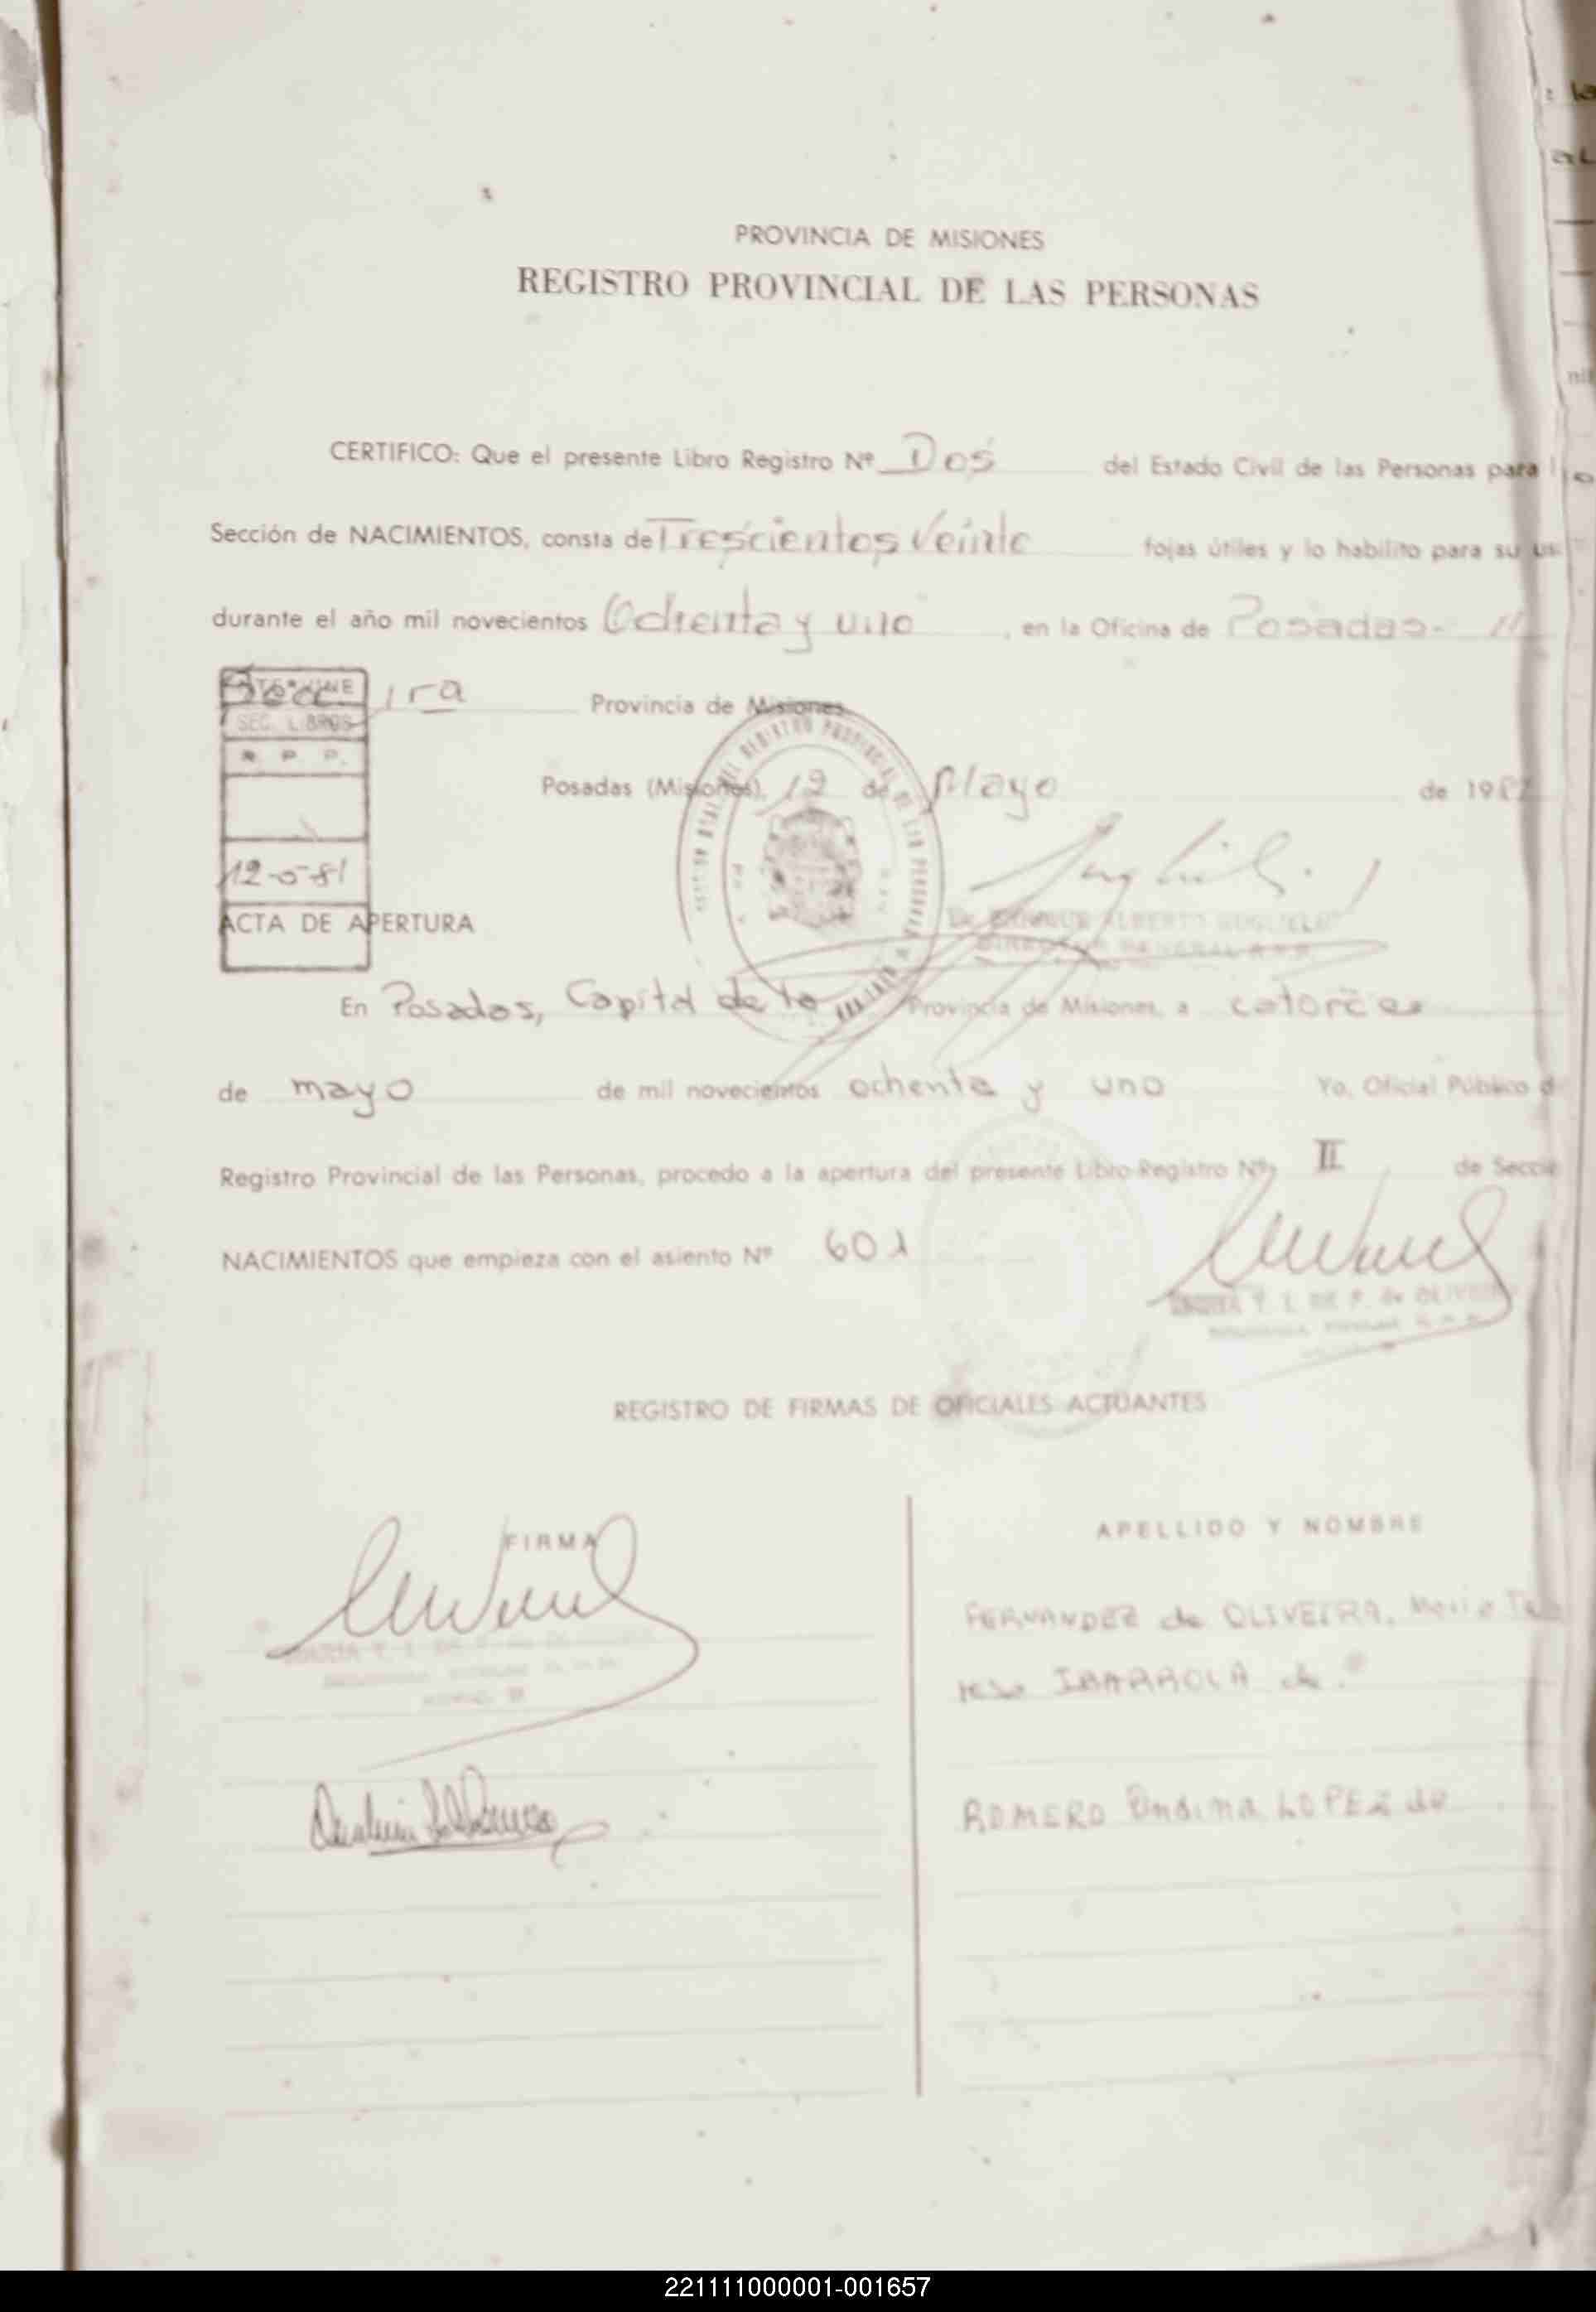 PROVINCIA DE MISIONES
REGISTRO PROVINCIAL DE LAS PERSONAS
CERTIFICO: Que el presente Libro Registro Nº Dos del Estado Civil de las Personas para l
Sección de NACIMIENTOS, consta de Trescientos Veinte fojas útiles y lo habilito para su us
durante el año mil novecientos Ochenta y uno, en la Oficina de Posadas-
Secc 1ra Provincia de Misiones
SEC. LIBROS
R. P. P.
Posadas (Misiones), 12 de Mayo de 198
12-5-81
ACTA DE APERTURA
En Posadas, Capital de la Provincia de Misiones, a catorce
de mayo de mil novecientos ochenta y uno Yo, Oficial Público d
Registro Provincial de las Personas, procedo a la apertura del presente Libro Registro Nº II de Secció
NACIMIENTOS que empieza con el asiento Nº 601
MARIA T. I. DE F. de OLIVEIRA
REGISTRO DE FIRMAS DE OFICIALES ACTUANTES
FIRMA
APELLIDO Y NOMBRE
FERNANDEZ de OLIVEIRA, Maria Te
resa IBARROLA de
ROMERO Ondina LOPEZ de
221111000001-001657